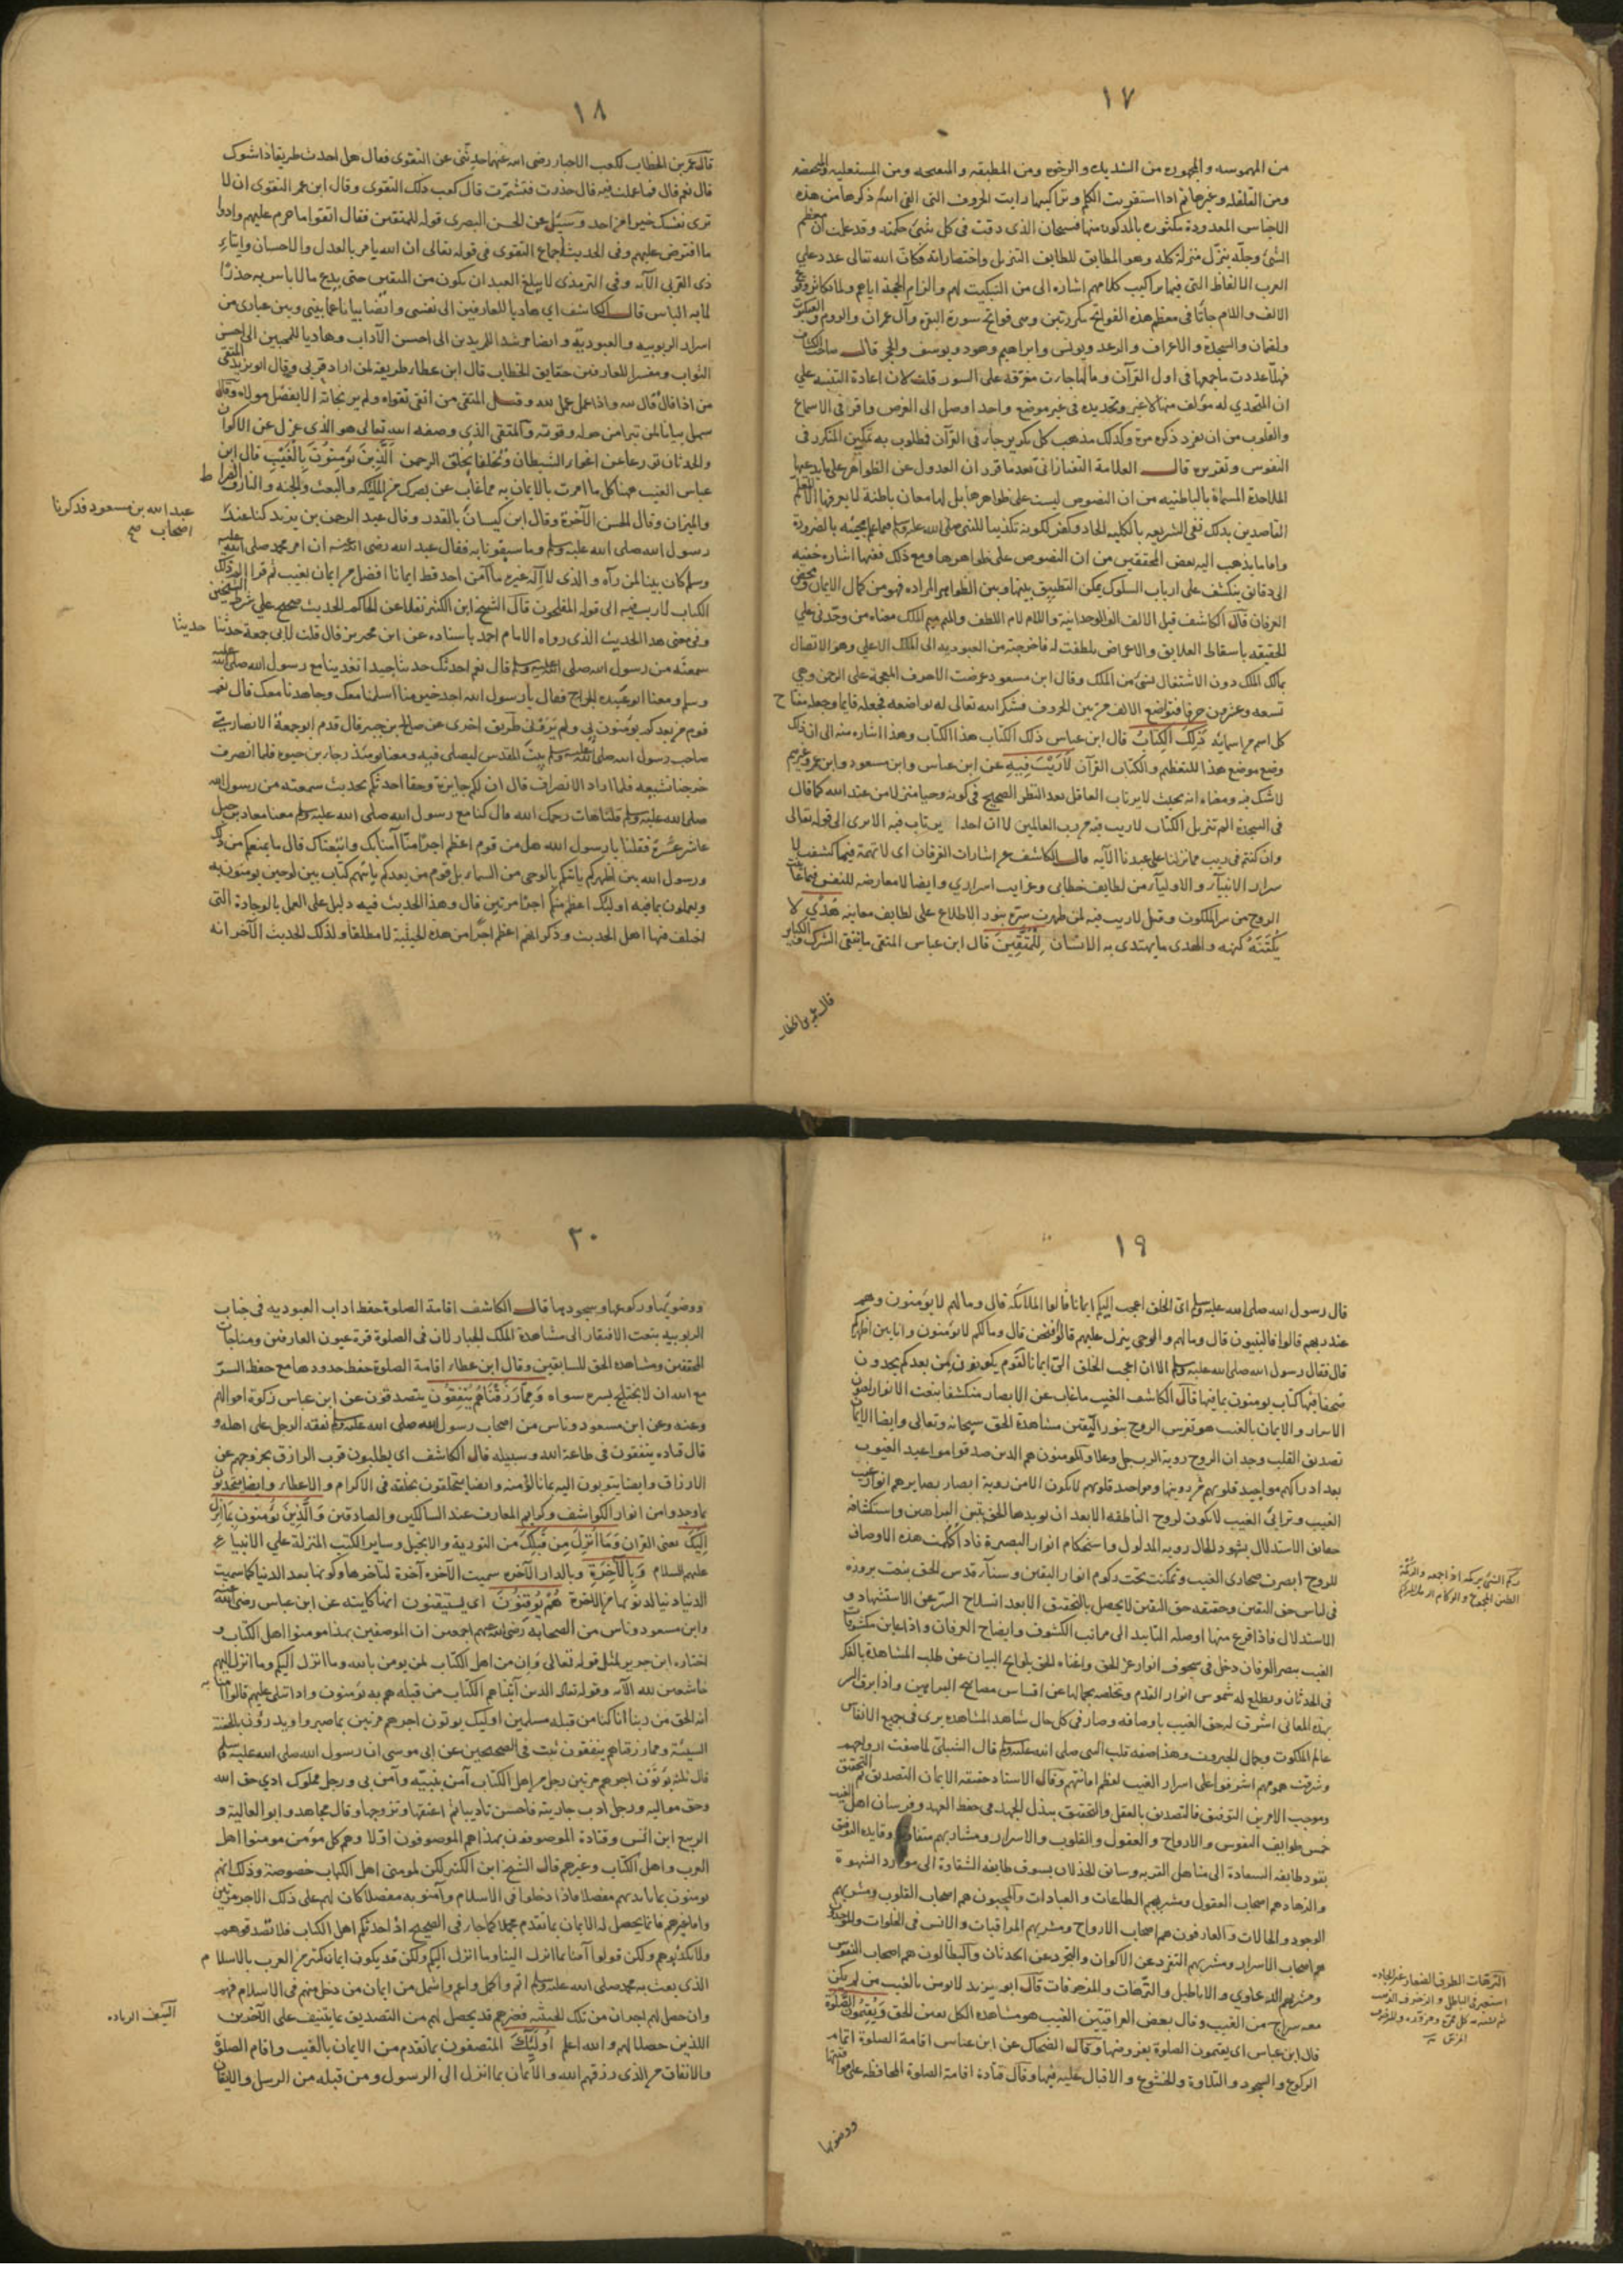 ١٧
من المهموسه والمجهوره من الشديده والرخوه ومن المطبقه والمنفتحه ومن المستعليه والمنخفضه
ومن القلقله وغيرها ثم اذا استقريت الكلم وتراكيبها رايت الحروف التى الغى الله ذكرها من هذه
الاجناس المعدودة مكثوره بالمذكوره منها فسبحان الذى دقت فى كل شئ حكمته وقد علمت ان معظم
الشئ وجلّه ينزّل منزلة كله وهو المطابق للطايف التنزيل واختصاراته فكانّ الله تعالى عدد علي
العرب الالفاظ التى فيها تراكيب كلامهم اشاره الى من التبكيت لهم والزام الحجة اياهم ولما تكاثر وقوع
الالف واللام جاتا فى معظم هذه الفواتح مكررتين وهى فواتح سورة البقره وآل عمران والروم والعنكبوت
ولقمان والسجدة والاعراف والرعد ويونس وابراهيم وهود ويوسف والحجر قال صاحب الكشاف
فهلّا عددت باجمعها فى اول القرآن وما لها جاءت مفرّقة على السور قلت لان اعادة التنبيه علي
ان المتحدي به مؤلف منها لا غير وتجديده فى غير موضع واحد اوصل الى الغرض واقر فى الاسماع
والقلوب من ان يفرد ذكره مرة وكذلك مذهب كل تكرير جاء فى القرآن فمطلوب به تمكين المكرر فى
النفوس وتقريره قال العلامة التفتازانى بعد ما قرر ان العدول عن الظواهر على ما يدعيها
الملاحدة المسماة بالباطنيه من ان النصوص ليست على ظواهرها بل لها معان باطنة لا يعرفها الا المعلم
القاصدين بذلك نفى الشريعه بالكليه الحاد وكفر لكونه تكذيبا للنبى صلى الله عليه وسلم فيما علم مجيئه به بالضرورة
واما ما يذهب اليه بعض المحققين من ان النصوص على ظواهرها ومع ذلك ففيها اشاره خفيه
الى دقائق ينكشف على ارباب السلوك يمكن التطبيق بينها وبين الظواهر المراده فهو من كمال الايمان ومحض
العرفان قال الكاشف قيل الالف الف الوحدانية واللام لام اللطف والميم ميم الملك معناه من وحّدنى علي
الحقيقه باسقاط العلايق والاعراض تلطفت له فاخرجته من العبوديه الى الملك الاعلى وهو الاتصال
بمالك الملك دون الاشتغال بشئ من الملك وقال ابن مسعود عرضت الاحرف المعجمة على الرحمن وهي
تسعه وعشرون حرفا فتواضع الالف من بين الحروف فشكر الله تعالى له تواضعه فجعله قايما وجعله مفتاح
كل اسم من اسمائه ذَلِكَ الكِتَابُ قال ابن عباس ذلك الكتاب هذا الكتاب وهذا اشاره منه الى ان ذلك
وضع موضع هذا للتعظيم والكتاب القرآن لَا رَيْبَ فِيهِ عن ابن عباس وابن مسعود وابن عمر وغيرهم
لا شك فيه ومعناه انه بحيث لا يرتاب العاقل بعد النظر الصحيح فى كونه وحيا منزلا من عند الله كما قال
فى السجدة الم تنزيل الكتاب لا ريب فيه من رب العالمين لا ان احدا يرتاب فيه الا ترى الى قوله تعالى
وان كنتم فى ريب مما نزلنا على عبدنا الآيه قال الكاشف من اشارات الفرقان اى لا تهمة فيما كشفت لا
سرار الانبيآء والاوليآء من لطايف خطابى وغرايب اسراري وايضا لا معارضه للنفس فيما عاينت
الروح من سر الملكوت وقيل لا ريب فيه لمن طهرت سرّه بنور الاطلاع على لطايف معاينه هُدًي لا
يُكْتَنَهُ كنهه والهدى ما يهتدى به الانسان لِلْمُتَّقِينَ قال ابن عباس المتقى ما يتقى الشرك والكبائر
قال عمر بن الخطاب
١٨
قال عمر بن الخطاب لكعب الاحبار رضى الله عنهما حدثنى عن التقوى فقال هل احدث طريقا ذا شوك
قال نعم قال فما عملت فيه قال حذرت فتشمرت قال كعب ذلك التقوى وقال ابن عمر التقوى ان لا
ترى نفسك خيرا من احد وسئل عن الحسن البصرى قوله للمتقين فقال اتقوا ما حرم عليهم وادوا
ما افترض عليهم وفى الحديث اجماع التقوى فى قوله تعالى ان الله يامر بالعدل والاحسان وايتاء
ذى القربى الآيه وفى الترمذى لا يبلغ العبد ان يكون من المتقين حتى يدع ما لا باس به حذرًا
لما به الباس قال الكاشف اي هاديا للعارفين الى نفسى وايضا بيانا عما بينى وبين عبادى من
اسرار الربوبيه والعبودية وايضا مرشدا للمريدين الى احسن الآداب وهاديا للمحبين الى احسن
الثواب ومفسرا للعارفين حقايق الخطاب قال ابن عطا طريقه لمن اراد قربى وقال ابو يزيد المتقى
من اذا قال قال لله واذا عمل عمل لله وقيل المتقى من اتقى تقواه ولم ير نجاته الا بفضل مولاه وقال
سهل بيانا لمن تبرا من حوله وقوته والمتقى الذى وصفه الله تعالى هو الذى عزل عن الاكوان
والحدثان تورعا عن اغوار الشيطان وتخلقا بخلق الرحمن اَلَّذِينَ يُؤْمِنُونَ بِالْغَيْبِ قال ابن
عباس الغيب ههنا كل ما امرت بالايمان به مما غاب عن بصرك من المليكه والبعث والجنه والنار والصراط
والميزان وقال الحسن الآخرة وقال ابن كيسان بالقدر وقال عبد الرحمن بن يزيد كنا عند
عبد الله بن مسعود فذكرنا
اصحاب صح
رسول الله صلى الله عليه وسلم وما سبقونا به فقال عبد الله رضى الله عنه ان امر محمد صلى الله عليه
وسلم كان بينا لمن رآه والذى لا اله غيره ما آمن احد قط ايمانا افضل من ايمان بغيب ثم قرا الم ذلك
الكتاب لا ريب فيه الى قوله المفلحون قال الشيخ ابن الكثير نقلا عن الحاكم الحديث صحيح على شرط الشيخين
وفى معنى هذا الحديث الذى رواه الامام احمد باسناده عن ابن محيريز قال قلت لابى جمعة حدثنا حديثا
سمعته من رسول الله صلى الله عليه وسلم قال نعم احدثك حديثا جيدا تغدينا مع رسول الله صلى الله عليه
وسلم ومعنا ابو عبيده الجراح فقال يا رسول الله احد خير منا اسلمنا معك وجاهدنا معك قال نعم
قوم من بعدكم يؤمنون بى ولم يرونى طريق اخرى عن صالح بن جبير قال قدم ابو جمعة الانصاري
صاحب رسول الله صلى الله عليه وسلم بيت المقدس ليصلى فيه ومعنا يومئذ رجاء بن حيوه فلما انصرف
خرجنا نشيعه فلما اراد الانصراف قال ان لكم جايزة وحقا احدثكم بحديث سمعته من رسول الله
صلى الله عليه وسلم قلنا هات رحمك الله قال كنا مع رسول الله صلى الله عليه وسلم معنا معاذ بن جبل
عاشر عشرة فقلنا يا رسول الله هل من قوم اعظم اجرا منا آمنا بك واتبعناك قال ما يمنعكم من ذلك
ورسول الله بين اظهركم ياتيكم بالوحى من السماء بل قوم من بعدكم ياتيهم كتاب بين لوحين يومنون به
ويعملون بما فيه اوليك اعظم منكم اجرا مرتين قال وهذا الحديث فيه دليل على العمل بالوجادة التى
اختلف فيها اهل الحديث وذكر انهم اعظم اجرًا من هذه الحيثية لا مطلقا ولذلك الحديث الآخر انه
١٩
قال رسول الله صلى الله عليه وسلم اىّ الخلق اعجب اليكم ايمانا قالوا الملائكة قال وما لهم لا يؤمنون وهم
عند ربهم قالوا فالنبيون قال وما لهم والوحى ينزل عليهم قالوا فنحن قال وما لكم لا تؤمنون وانا بين اظهركم
قال فقال رسول الله صلى الله عليه وسلم الا ان اعجب الخلق الىّ ايمانا لقوم يكونون من بعدكم يجدون
صحفا فيها كتاب يومنون بما فيها قال الكاشف الغيب ما غاب عن الابصار منكشفا بنعت الانوار لعيون
الاسرار والايمان بالغيب هو تفرس الروح بنور اليقين مشاهدة الحق سبحانه وتعالى وايضا الايمان
تصديق القلب وجدان الروح روية الرب جل وعلا والمومنون هم الذين صدقوا مواعيد الغيوب
بعد ادراكهم مواجيد قلوبهم ومواجيد قلوبهم لا يكون الا من روية ابصار بصايرهم انوار غيب
الغيب وترائى الغيب لا يكون لروح الناطقه الا بعد ان يويدها الحق بتبين البراهين واستكشافه
حقايق الاستدلال بشهود الحال رويه المدلول واستحكام انوار البصيرة فاذا اكملت هذه الاوصاف
للروح ابصرت صحارى الغيب وتمكنت تحت ركوم انوار اليقين وسنآء قدس الحق بنعت بروزه
ركم الشئ يركمه اذا جمعه والركمة
الطين المجموع والركام الرمل المتراكم
فى لباس حق اليقين وحقيقه حق اليقين لا يحصل بالتحقيق الا بعد انسلاخ السرّ عن الاستشهاد و
الاستدلال فاذا فرغ منها اوصله التاييد الى مراتب الكشوف وايضاح العرفان واذا عاين مكشوفات
الغيب ببصر العرفان دخل فى سجوف انوار عز الحق واغناه الحق بلوايح البيان عن طلب المشاهدة بالفكر
فى الحدثان ويطلع له شموس انوار القدم وتخلصه بجمالها عن اقتباس مصابيح البراهين واذا برق السر
بهذه المعانى اشرق له حق الغيب باوصافه وصار فى كل حال شاهد المشاهده يرى فى جميع الانفاس
عالم الملكوت وجمال الجبروت وهذا صفه قلب النبى صلى الله عليه وسلم قال الشبلى لما صفت ارواحهم
وشرقت همومهم اشرفوا على اسرار الغيب لعظم امانتهم وقال الاستاد حقيقة الايمان التصديق ثم التحقيق
وموجب الامرين التوفيق فالتصديق بالعقل والتحقيق ببذل الجهد فى حفظ العهد وفرسان اهل الغيب
خمس طوايف النفوس والارواح والعقول والقلوب والاسرار ومشاربهم متفاوته وقايده التوفيق
يقود طايفه السعادة الى مناهل القربه وسائق الخذلان يسوق طايفه الشقاوة الى موارد الشهوة
والزهاد هم اصحاب العقول ومشربهم الطاعات والعبادات والمحبون هم اصحاب القلوب ومشربهم
الوجود والحالات والعارفون هم اصحاب الارواح ومشربهم المراقبات والانس فى الخلوات والموحدون
هم اصحاب الاسرار ومشربهم التفرد عن الاكوان والتجرد عن الحدثان والبطالون هم اصحاب النفوس
ومشربهم الدعاوي والاباطيل والترّهات والمزخرفات قال ابو يزيد لا يومن بالغيب من لم يكن
الترهات الطرق الصغار غير الجاده
معه سراج من الغيب وقال بعض العراقيين الغيب هو مشاهده الكل بعين الحق وَيُقِيمُونَ الصَّلٰوةَ
قال ابن عباس اى يقيمون الصلوة بفروضها وقال الضحاك عن ابن عباس اقامة الصلوة اتمام
الركوع والسجود والتلاوة والخشوع والاقبال عليه فيها وقال قتادة اقامة الصلوة المحافظه على مواقيتها
ووضوئها
٢٠
ووضوئها وركوعها وسجودها قال الكاشف اقامة الصلوة حفظ اداب العبوديه فى جناب
الربوبيه بنعت الافتقار الى مشاهدة الملك الجبار لان فى الصلوة قرة عيون العارفين ومناجات
المحققين ومشاهده الحق للسابقين وقال ابن عطار اقامة الصلوة حفظ حدودها مع حفظ السرّ
مع الله ان لا يختلج بسره سواه وَمِمَّا رَزَقْنَاهُمْ يُنْفِقُونَ يتصدقون عن ابن عباس زكوة اموالهم
وعنه وعن ابن مسعود وناس من اصحاب رسول الله صلى الله عليه وسلم نفقه الرجل على اهله و
قال قتاده ينفقون فى طاعة الله وسبيله قال الكاشف اى يطلبون قرب الرازق بخروجهم عن
الارزاق وايضا يتوبون اليه بما نالوا منه وايضا يتخلقون بخلقه فى الاكرام والاعطاء وايضا يتحدثون
بما وجدوا من انوار الكواشف وكرايم المعارف عند السالكين والصادقين وَالَّذِينَ يُؤْمِنُونَ بِمَا اُنْزِلَ
اِلَيْكَ يعنى القران وَمَا اُنْزِلَ مِنْ قَبْلِكَ من التورية والانجيل وساير الكتب المنزلة علي الانبيآء
عليهم السلام وَبِالْآخِرَةِ وبالدار الآخره سميت الآخره آخرة لتاخرها وكونها بعد الدنيا كما سميت
الدنيا دنيا لدنوّها من الاخرة هُمْ يُوقِنُونَ اى يستيقنون انها كاينة عن ابن عباس رضى الله عنه
وابن مسعود وناس من الصحابه رضى الله عنهم اجمعين ان الموصفين بهذا مومنوا اهل الكتاب و
اختاره ابن جرير لمثل قوله تعالى وَاِن من اهل الكتاب لمن يومن بالله وما انزل اليكم وما انزل اليهم
خاشعين لله الآيه وقوله تعالى الذين آتيناهم الكتاب من قبله هم به يؤمنون واذا تتلى عليهم قالوا آمنا به
انه الحق من ربنا انا كنا من قبله مسلمين اوليك يوتون اجرهم مرتين بما صبروا ويدرؤن بالحسنة
السيئة ومما رزقناهم ينفقون ثبت فى الصحيحين عن ابى موسى ان رسول الله صلى الله عليه وسلم
قال ثلثه يؤتون اجرهم مرتين رجل من اهل الكتاب آمن بنبيّه وآمن بى ورجل مملوك ادي حق الله
وحق مواليه ورجل ادب جاريته فاحسن تاديبها ثم اعتقها وتزوجها وقال مجاهد وابو العالية و
الربيع ابن انس وقتادة الموصوفون بهذا هم الموصوفون اوّلا وهم كل مؤمن مومنوا اهل
العرب واهل الكتاب وغيرهم قال الشيخ ابن الكثير لكن لمومنى اهل الكتاب خصوصة وذلك انهم
يومنون بما بايديهم مفصلا فاذا دخلوا فى الاسلام وآمنوا به مفصلا كان لهم على ذلك الاجر مرتين
واما غيرهم فانما يحصل له الايمان بما تقدم مجملا كما جاء فى الصحيح اذا حدثكم اهل الكتاب فلا تصدقوهم
ولا تكذبوهم ولكن قولوا آمنا بما انزل الينا وما انزل اليكم ولكن قد يكون ايمان كثير من العرب بالاسلام
الذى بعث به محمد صلى الله عليه وسلم اتم واكمل واعم واشمل من ايمان من دخل منهم فى الاسلام فهم
وان حصل لهم اجران من تلك الحيثية فغيرهم قد يحصل لهم من التصديق ما ينيف على الآخرين
النيف الزياده
اللذين حصلا لهم والله اعلم اُولَٰئِكَ المتصفون بما تقدم من الايمان بالغيب واقام الصلوة
والانفاق من الذى رزقهم الله والايمان بما انزل الى الرسول ومن قبله من الرسل والايقان